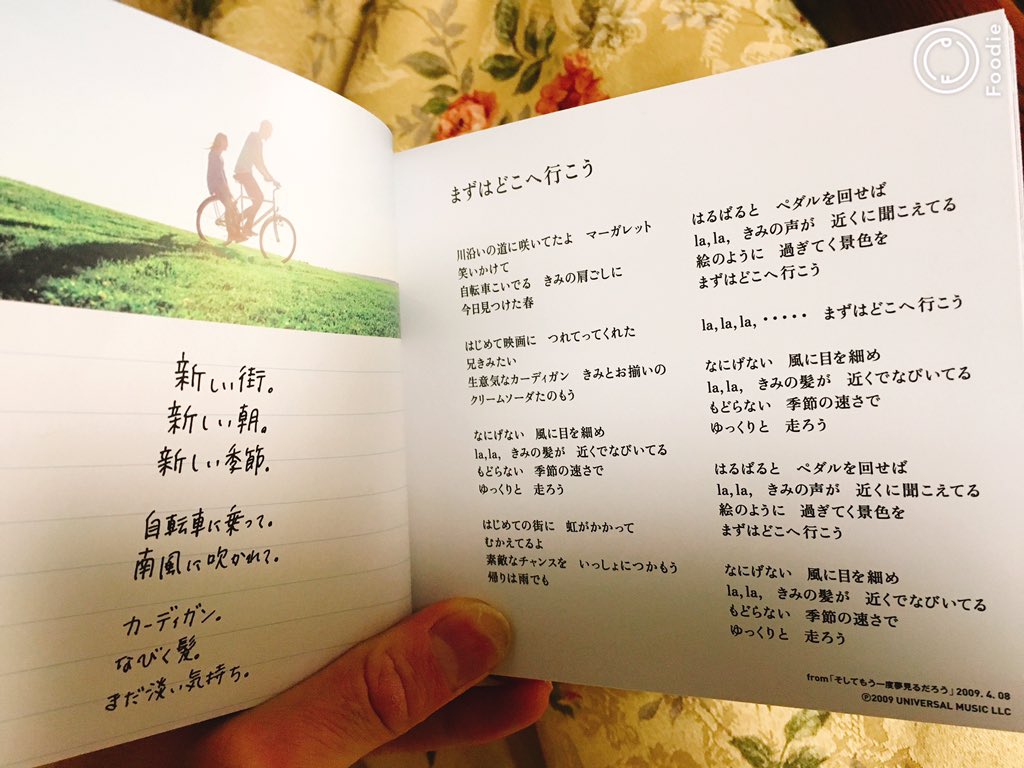 新しい街。
新しい朝。
新しい季節。
自転車に乗って。
南風に吹かれて。
カーディガン。
なびく髪。
まだ淡い気持ち。
まずはどこへ行こう
川沿いの道に咲いてたよ　マーガレット
笑いかけて
自転車こいでる　きみの肩ごしに
今日見つけた春
はじめて映画に　つれてってくれた
兄きみたい
生意気なカーディガン　きみとお揃いの
クリームソーダたのもう
なにげない　風に目を細め
la, la,　きみの髪が　近くでなびいてる
もどらない　季節の速さで
ゆっくりと　走ろう
はじめての街に　虹がかかって
むかえてるよ
素敵なチャンスを　いっしょにつかもう
帰りは雨でも
はるばると　ペダルを回せば
la, la,　きみの声が　近くに聞こえてる
絵のように　過ぎてく景色を
まずはどこへ行こう
la, la, la, ・・・・・　まずはどこへ行こう
なにげない　風に目を細め
la, la,　きみの髪が　近くでなびいてる
もどらない　季節の速さで
ゆっくりと　走ろう
はるばると　ペダルを回せば
la, la,　きみの声が　近くに聞こえてる
絵のように　過ぎてく景色を
まずはどこへ行こう
なにげない　風に目を細め
la, la,　きみの髪が　近くでなびいてる
もどらない　季節の速さで
ゆっくりと　走ろう
from「そしてもう一度夢見るだろう」2009. 4. 08
Ⓟ2009 UNIVERSAL MUSIC LLC
Foodie